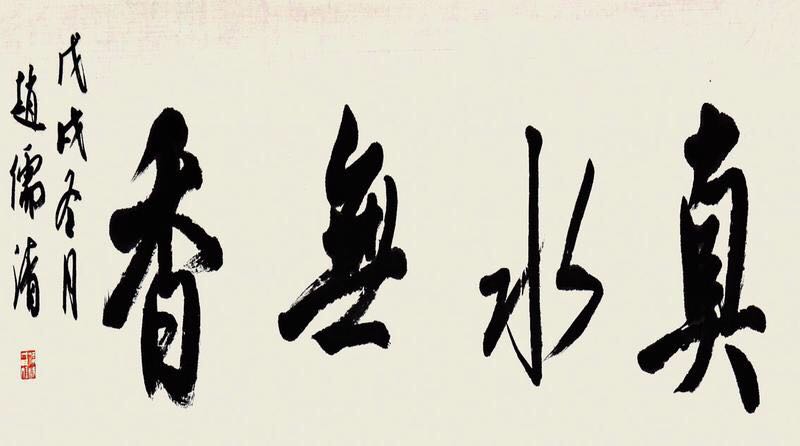 真水無香
戊戌冬月
趙儒清